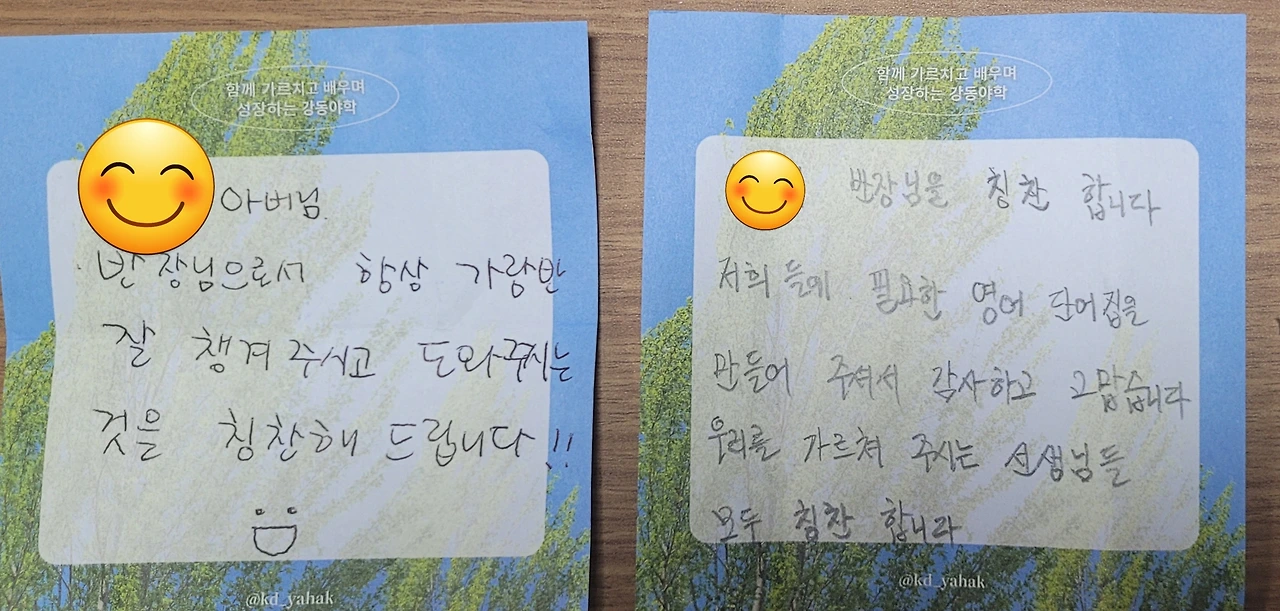 함께 가르치고 배우며
성장하는 강동야학
아버님.
반장님으로서 항상 가람반
잘 챙겨 주시고 도와주시는
것을 칭찬해 드립니다!!
@kd_yahak
함께 가르치고 배우며
성장하는 강동야학
반장님을 칭찬 합니다
저희 들에 필요한 영어 단어집을
만들어 주셔서 감사하고 고맙습니다
우리를 가르쳐 주시는 선생님들
모두 칭찬 합니다
@kd_yahak